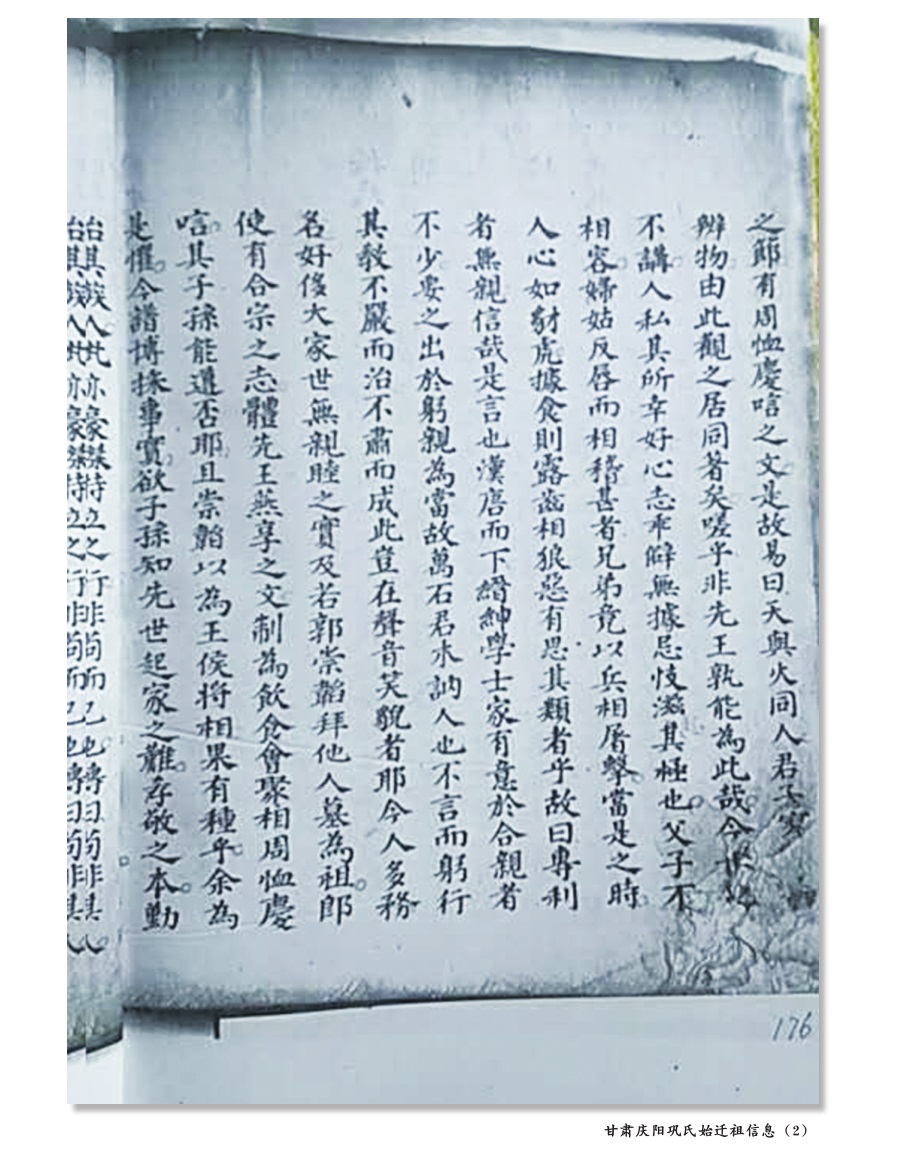 之節有周恤慶唁之文是故易曰天與火同人君子
辨物由此觀之居同著矣嗟乎非先王孰能為此哉今
不講人私其所幸好心志乖僻無據忌忮滋其極也父子不
相容婦姑反唇而相稽甚者兄弟竟以兵相屠擊當是之時
人心如豺虎據食則露齒相狼惡有思其類者乎故曰專利
者無親信哉是言也漢唐而下縉紳學士家有意於合親者
不少要之出於躬親為當故萬石君木訥人也不言而躬行
其教不嚴而治不肅而成此豈在聲音笑貌者耶今人多務
名好侈大家世無親睦之實及若郭崇韜拜他人墓為祖郎
使有合宗之志體先王燕享之文制為飲食會聚相周恤慶
唁其子孫能遵否耶且崇韜以為王侯將相果有種乎余為
是懼今譜博採事實欲子孫知先世起家之難存敬之本勤
人亦豪傑特立之行非苟而已也傳曰苟非其人
176
甘肃庆阳巩氏始迁祖信息（2）